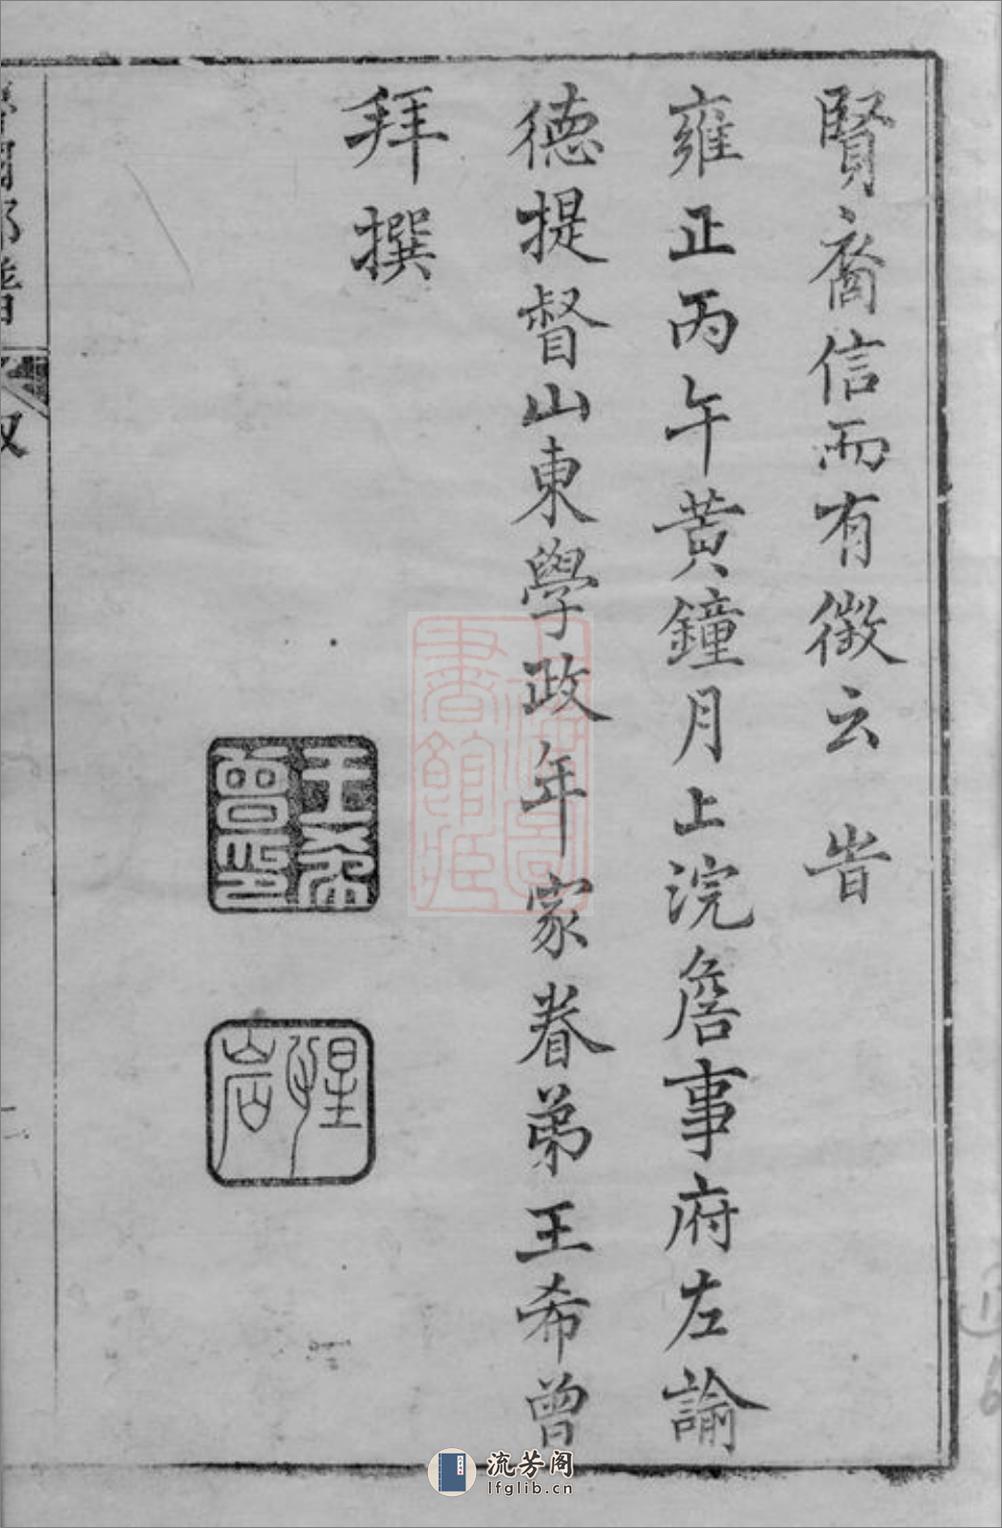 賢裔信而有徵云 旹
雍正丙午黃鐘月上浣詹事府左諭
德提督山東學政年家眷弟王希曾
拜撰
王希曾印
惺岩
叙
流芳阁
lfglib.cn